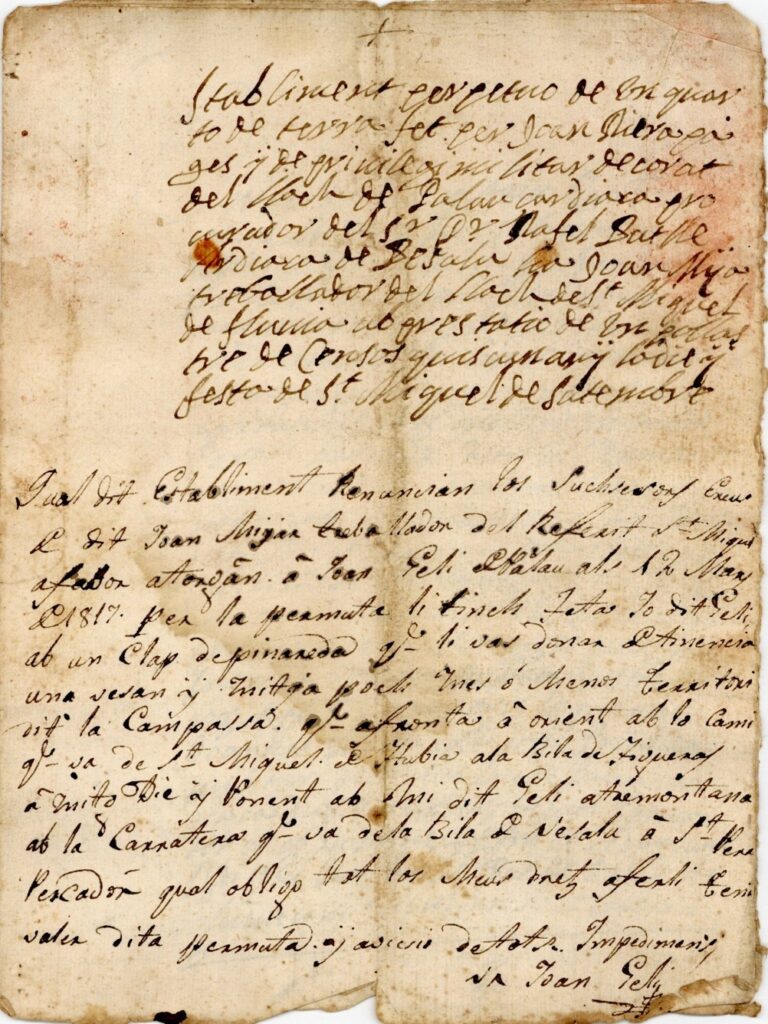 Stabliment perpetuo de un quar
to de terra fet per Joan Riera pa
ges y de privilegi militar decorat
del lloch de Palau cardiaca pro
curador del Sr. Dr. Rafel Batlle
ardiaca de Besalu ha Joan Mija
treballador del lloch de St. Miquel
de fluvia ab prestatio de un pollas
tre de Censos quiscun any lo die y
festa de St. Miquel de Satembre
Qual dit Establiment Renuncian los Suchsesors
de dit Joan Mijar treballador del Referit St. Miquel
afabor atorgan. á Joan Geli de Palau als 12 Mars
de 1817. per la permuta li tinch feta Jo dit Geli
ab un Clap de pinareda qe. li vas donar de tinencia
una vesan y mitja poch mes ó menos territori
dit la Campassa. qe. afronta á orient ab lo cami
qe. va de St. Miquel. de flubia a la Bila de figueras
á mito Die y Ponent ab mi dit Geli atremontana
ab la Carratera qe. va de la Bila de Vesalu á St. Pera
Pescador qual obligo tot los Meus drets aferli
valer dita permuta. y avicsio de tots. Impediments
Joan Geli